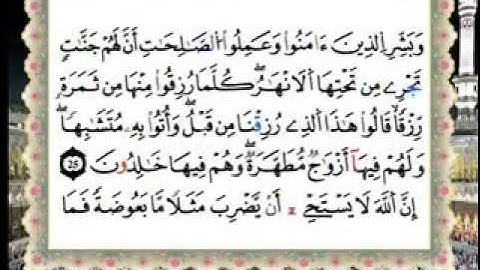 وَبَشِّرِ الَّذِينَ ءَامَنُوا وَعَمِلُوا الصَّـٰلِحَـٰتِ أَنَّ لَهُمْ جَنَّـٰتٍ
تَجْرِے مِن تَحْتِهَا الْأَنْهَـٰرُ ۖ كُلَّمَا رُزِقُوا مِنْهَا مِن ثَمَرَةٍ
رِّزْقًا ۙ قَالُوا هَـٰذَا الَّذِے رُزِقْنَا مِن قَبْلُ ۖ وَأُتُوا بِهِ مُتَشَـٰبِهًا ۖ
وَلَهُمْ فِيهَآ أَزْوَٰجٌ مُّطَهَّرَةٌ ۖ وَهُمْ فِيهَا خَـٰلِدُونَ 25
إِنَّ اللَّهَ لَا يَسْتَحْيِۦٓ أَنْ يَّضْرِبَ مَثَلًا مَّا بَعُوضَةً فَمَا